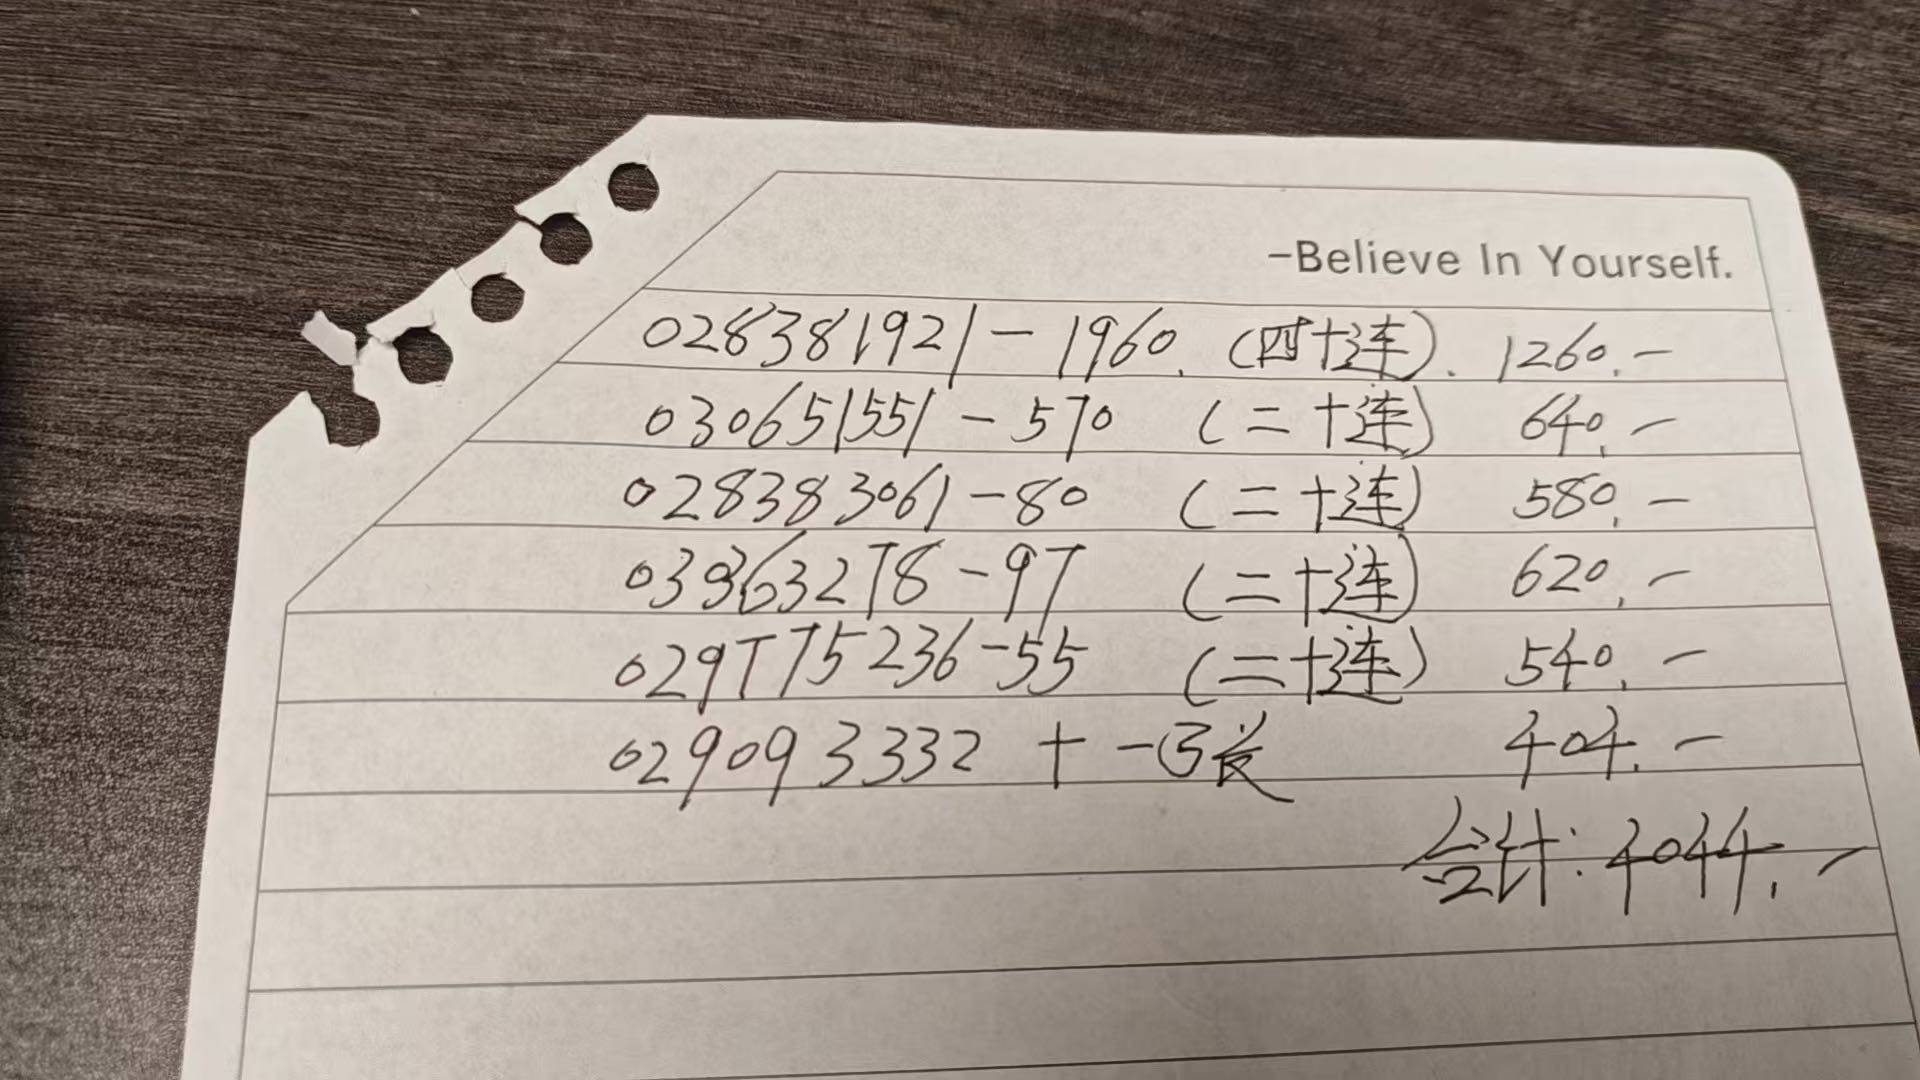 -Believe In Yourself.
028381921-1960.(四十连). 1260.-
030651551-570 (二十连) 640.-
028383061-80 (二十连) 580.-
039363278-97 (二十连) 620.-
029775236-55 (二十连) 540.-
029093332 + 404.-
合计:4044.-